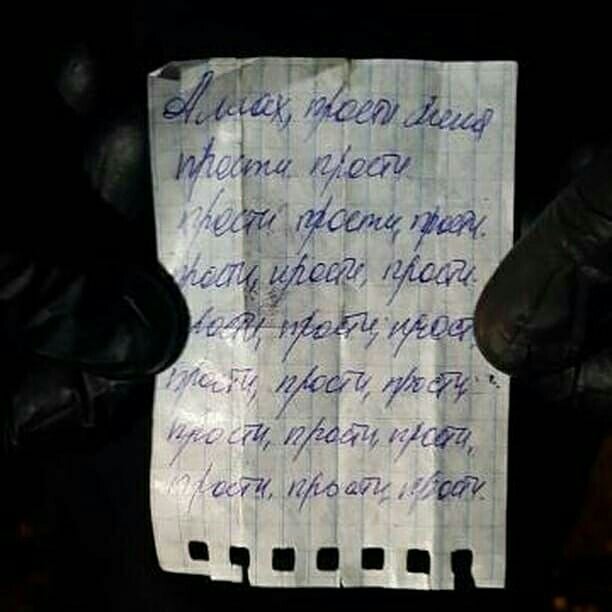 Аллах, прости меня
прости прости.
прости прости, прости.
прости, прости, прости.
прости, прости, прост
прости, прости, прости,
прости, прости, прости,
прости, прости, прости.